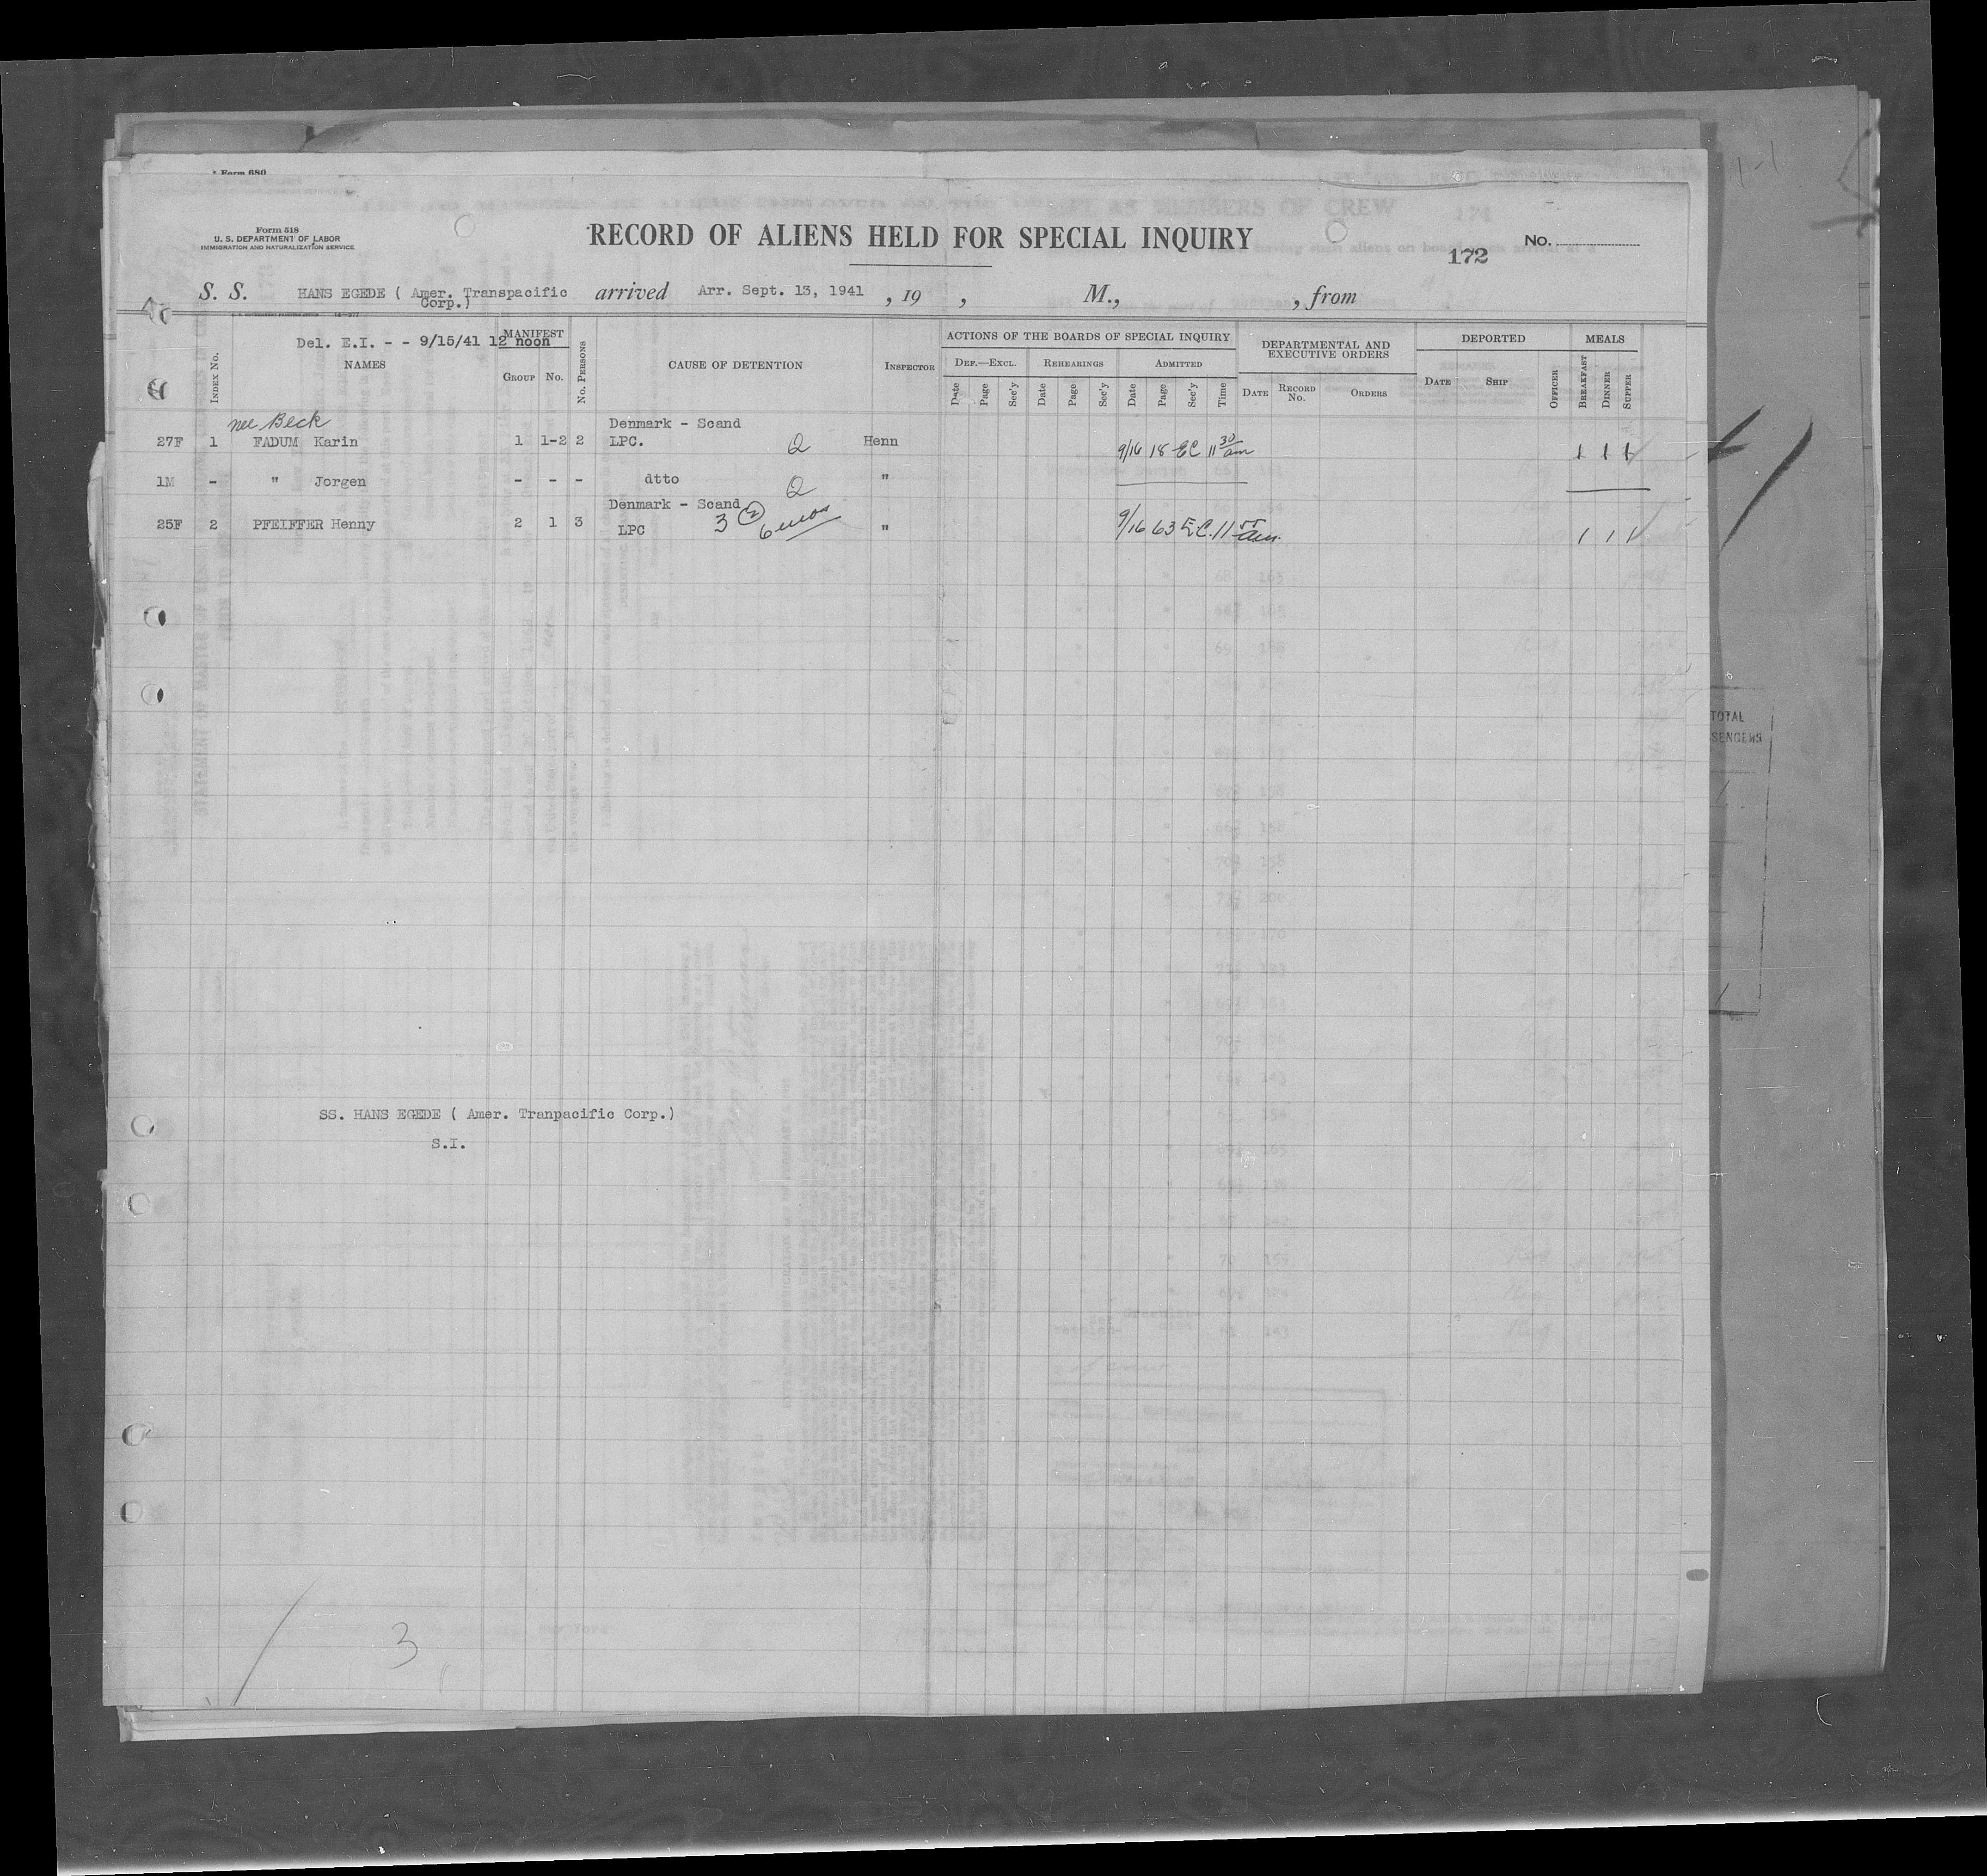 Form 680
Form 518
U. S. DEPARTMENT OF LABOR
IMMIGRATION AND NATURALIZATION SERVICE
RECORD OF ALIENS HELD FOR SPECIAL INQUIRY
No.
172
S. S. HANS EGEDE ( Amer. Transpacific Corp.) arrived Arr. Sept. 13, 1941 , 19 , M., , from
Del. E.I. - - 9/15/41 12 noon
INDEX No. NAMES MANIFEST GROUP No. No. PERSONS CAUSE OF DETENTION INSPECTOR
ACTIONS OF THE BOARDS OF SPECIAL INQUIRY
DEF.—EXCL. REHEARINGS ADMITTED
Date Page Sec'y Date Page Sec'y Date Page Sec'y Time
DEPARTMENTAL AND EXECUTIVE ORDERS
DATE RECORD No. ORDERS
DEPORTED
DATE SHIP OFFICER
MEALS
BREAKFAST DINNER SUPPER
nee Beck
Denmark - Scand
27F 1 FADUM Karin 1 1-2 2 LPC. Henn 9/16 18 EC 11 30 am 1 1 1
1M - " Jorgen - - - dtto "
Denmark - Scand
25F 2 PFEIFFER Henny 2 1 3 LPC 3 2 6 mos " 9/16 63 E.C. 11 55 am. 1 1 1
TOTAL
SENGERS
SS. HANS EGEDE ( Amer. Tranpacific Corp.)
S.I.
3